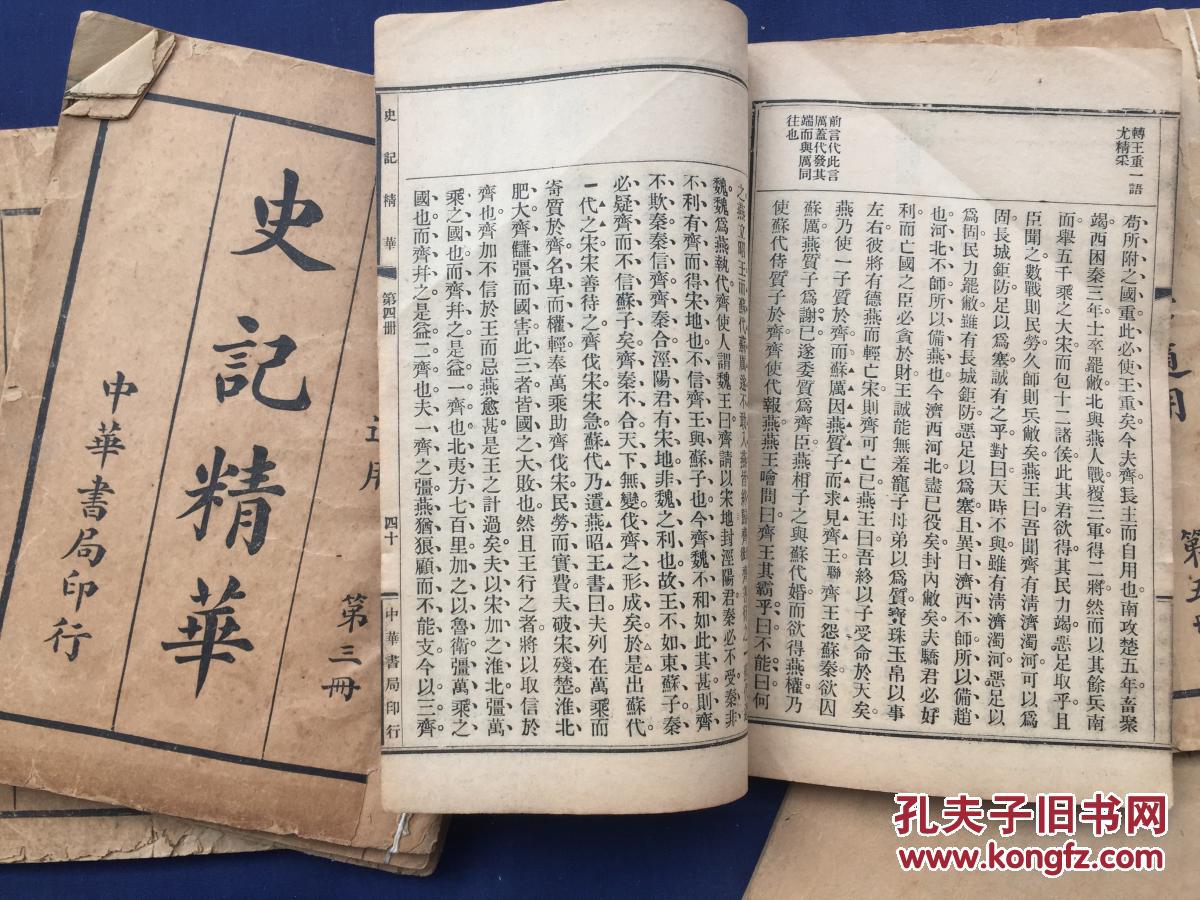 轉王重一語
尤精采
苟所附之國重此必使王重矣今夫齊長主而自用也南攻楚五年畜聚
竭西困秦三年士卒罷敝北與燕人戰覆三軍得二將然而以其餘兵南
面舉五千乘之大宋而包十二諸侯此其君欲得其民力竭惡足取乎且
臣聞之數戰則民勞久師則兵敝矣燕王曰吾聞齊有淸濟濁河可以爲
固長城鉅防足以爲塞誠有之乎對曰天時不與雖有淸濟濁河惡足以
爲固民力罷敝雖有長城鉅防惡足以爲塞且異日濟西不師所以備趙
也河北不師所以備燕也今濟西河北盡已役矣封內敝矣夫驕君必好
利而亡國之臣必貪於財王誠能無羞寵子母弟以爲質寶珠玉帛以事
左右彼將有德燕而輕亡宋則齊可亡已燕王曰吾終以子受命於天矣
前言代此言
厲蓋代發其
端而與厲同
往也
燕乃使一子質於齊而蘇厲因燕質子而求見齊王聯齊王怨蘇秦欲囚
蘇厲燕質子爲謝已遂委質爲齊臣燕相子之與蘇代婚而欲得燕權乃
使蘇代侍質子於齊齊使代報燕燕王噲問曰齊王其霸乎曰不能曰何
之燕立昭王而蘇代蘇厲遂不敢入燕皆終歸齊
魏魏爲燕執代齊使人謂魏王曰齊請以宋地封涇陽君秦必不受秦非
不利有齊而得宋地也不信齊王與蘇子也今齊魏不和如此其甚則齊
不欺秦秦信齊齊秦合涇陽君有宋地非魏之利也故王不如東蘇子秦
必疑齊而不信蘇子矣齊秦不合天下無變伐齊之形成矣於是出蘇代
一代之宋宋善待之齊伐宋宋急蘇代乃遺燕昭王書曰夫列在萬乘而
寄質於齊名卑而權輕奉萬乘助齊伐宋民勞而實費夫破宋殘楚淮北
肥大齊讎彊而國害此三者皆國之大敗也然且王行之者將以取信於
齊也齊加不信於王而忌燕愈甚是王之計過矣夫以宋加之淮北彊萬
乘之國也而齊幷之是益一齊也北夷方七百里加之以魯衛彊萬乘之
國也而齊幷之是益二齊也夫一齊之彊燕猶狼顧而不能支今以三齊
史記精華
第四册
四十
中華書局印行
史記精華
第三册
中華書局印行
孔夫子旧书网
www.kongfz.com